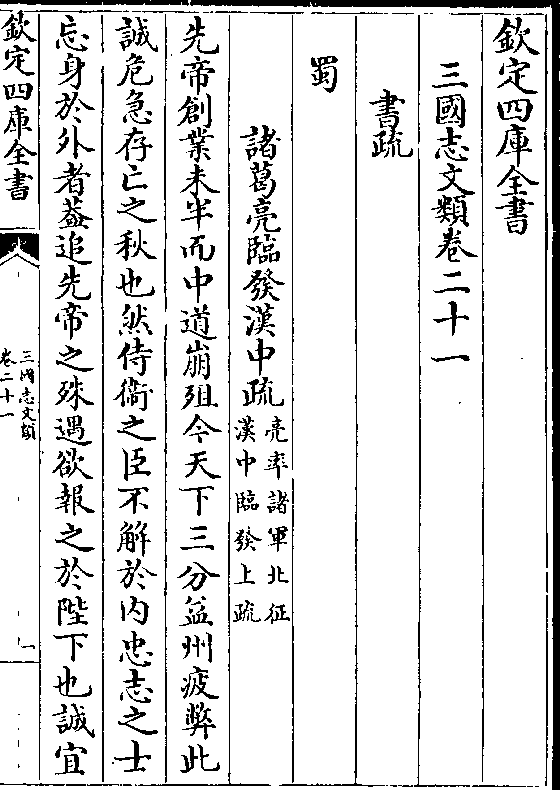 欽定四庫全書
三國志文類卷二十一
書疏
蜀
諸葛亮臨發漢中疏亮率諸軍北征
漢中臨發上疏
先帝創業未半而中道崩殂今天下三分益州疲弊此
誠危急存亡之秋也然侍衛之臣不解於内忠志之士
忘身於外者葢追先帝之殊遇欲報之於陛下也誠宜
欽定四庫全書
三國志文類
卷二十一
一